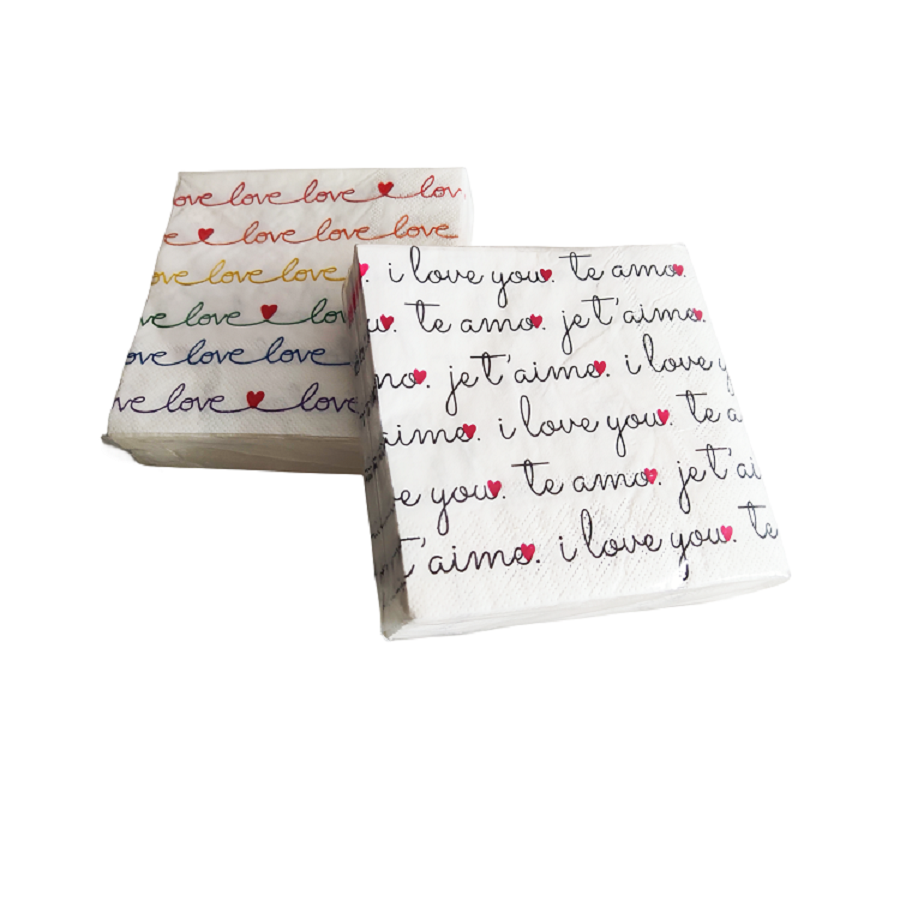 love love ♥ lov
♥ love love love
love love
love ♥ lo
love love
love ♥ love
i love you. te amo.
te amo. je t'aime.
je t'aime. i love
i love you. te
you. te amo. je t'ai
t'aime. i love you. te